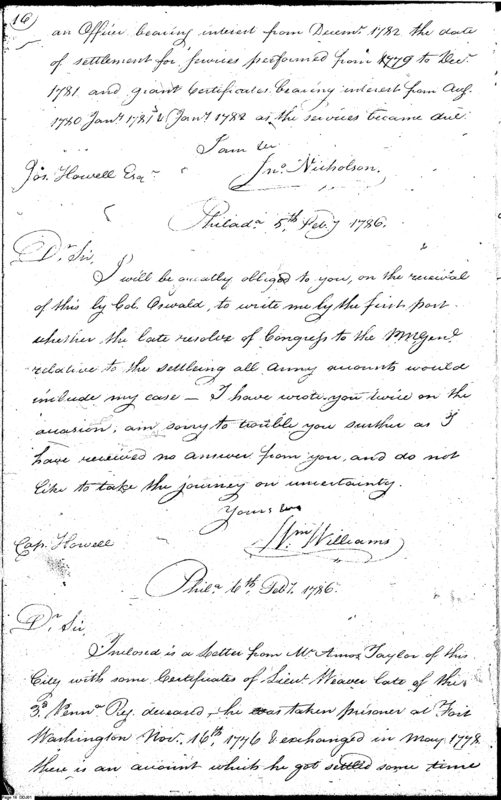 16
an Officer bearing interest from Decemr. 1782 the date
of settlement for services performed from 1779 to Decr.
1781 and grant Certificates bearing interest from Augt.
1780 Jany. 1781 & Jany. 1782 as the services became due.
I am &c
Jno. Nicholson.
Jos. Howell Esqr.
Philada. 5th. Feby. 1786.
Dr. Sir,
I will be greatly obliged to you, on the receival
of this by Col. Oswald, to write me by the first post
whether the late resolve of Congress to the PMGenl.
relative to the settleing all Army accounts would
include my case — I have wrote you twice on the
occasion, am sorry to trouble you further as I
have received no answer from you, and do not
like to take the journey on uncertainty.
Yours &c
Wm. Williams
Cap. Howell
Phila. 6th. Feby. 1786.
Dr. Sir
Inclosed is a Letter from Mr. Amos Taylor of this
City with some Certificates of Lieut. Weaver late of the
3d. Pennr. Reg. deceased, he was taken prisoner at Fort
Washington Nov. 16th, 1776 & exchanged in May 1778
there is an account which he got settled some time
Page 16 DDJ01